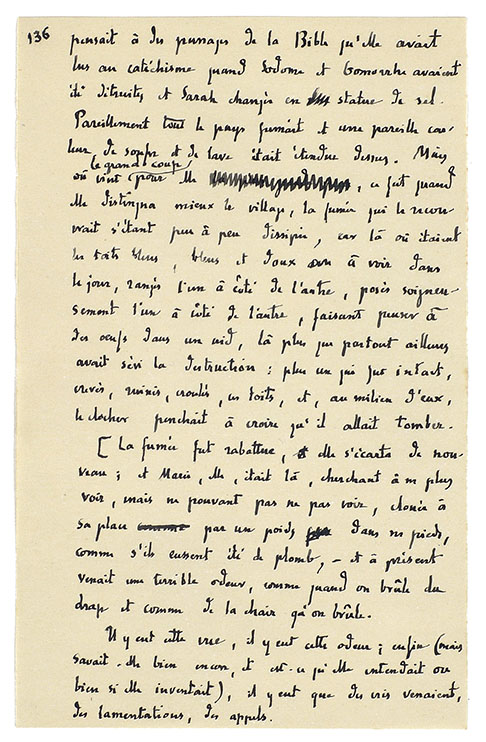 136
pensait à des passages de la Bible qu'elle avait
lus au catéchisme quand Sodome et Gomorrhe avaient
été détruites, et Sarah changée en statue de sel.
Pareillement tout le pays fumait et une pareille cou-
leur de soufre et de lave était étendue dessus. Mais
le grand coup
où vint pour elle, ce fut quand
elle distingua mieux le village, la fumée qui le recou-
vrait s'étant peu à peu dissipée, car là où étaient
les toits bleus, bleus et doux à voir dans
le jour, rangés l'un à côté de l'autre, posés soigneu-
sement l'un à côté de l'autre, faisant penser à
des oeufs dans un nid, là plus que partout ailleurs
avait sévi la destruction : plus un qui fut intact,
crevés, ruinés, croulés, ces toits, et, au milieu d'eux,
le clocher penchait à croire qu'il allait tomber.
[ La fumée fut rabattue, elle s'écarta de nou-
veau ; et Marie, elle, était là, cherchant à ne plus
voir, mais ne pouvant pas ne pas voir, clouée à
sa place par un poids dans ses pieds,
comme s'ils eussent été de plomb, – et à présent
venait une terrible odeur, comme quand on brûle du
drap et comme de la chair qu'on brûle.
Il y eut cette vue, il y eut cette odeur ; enfin (mais
savait-elle bien encore, et est-ce qu'elle entendait ou
bien si elle inventait), il y eut que des cris venaient,
des lamentations, des appels.